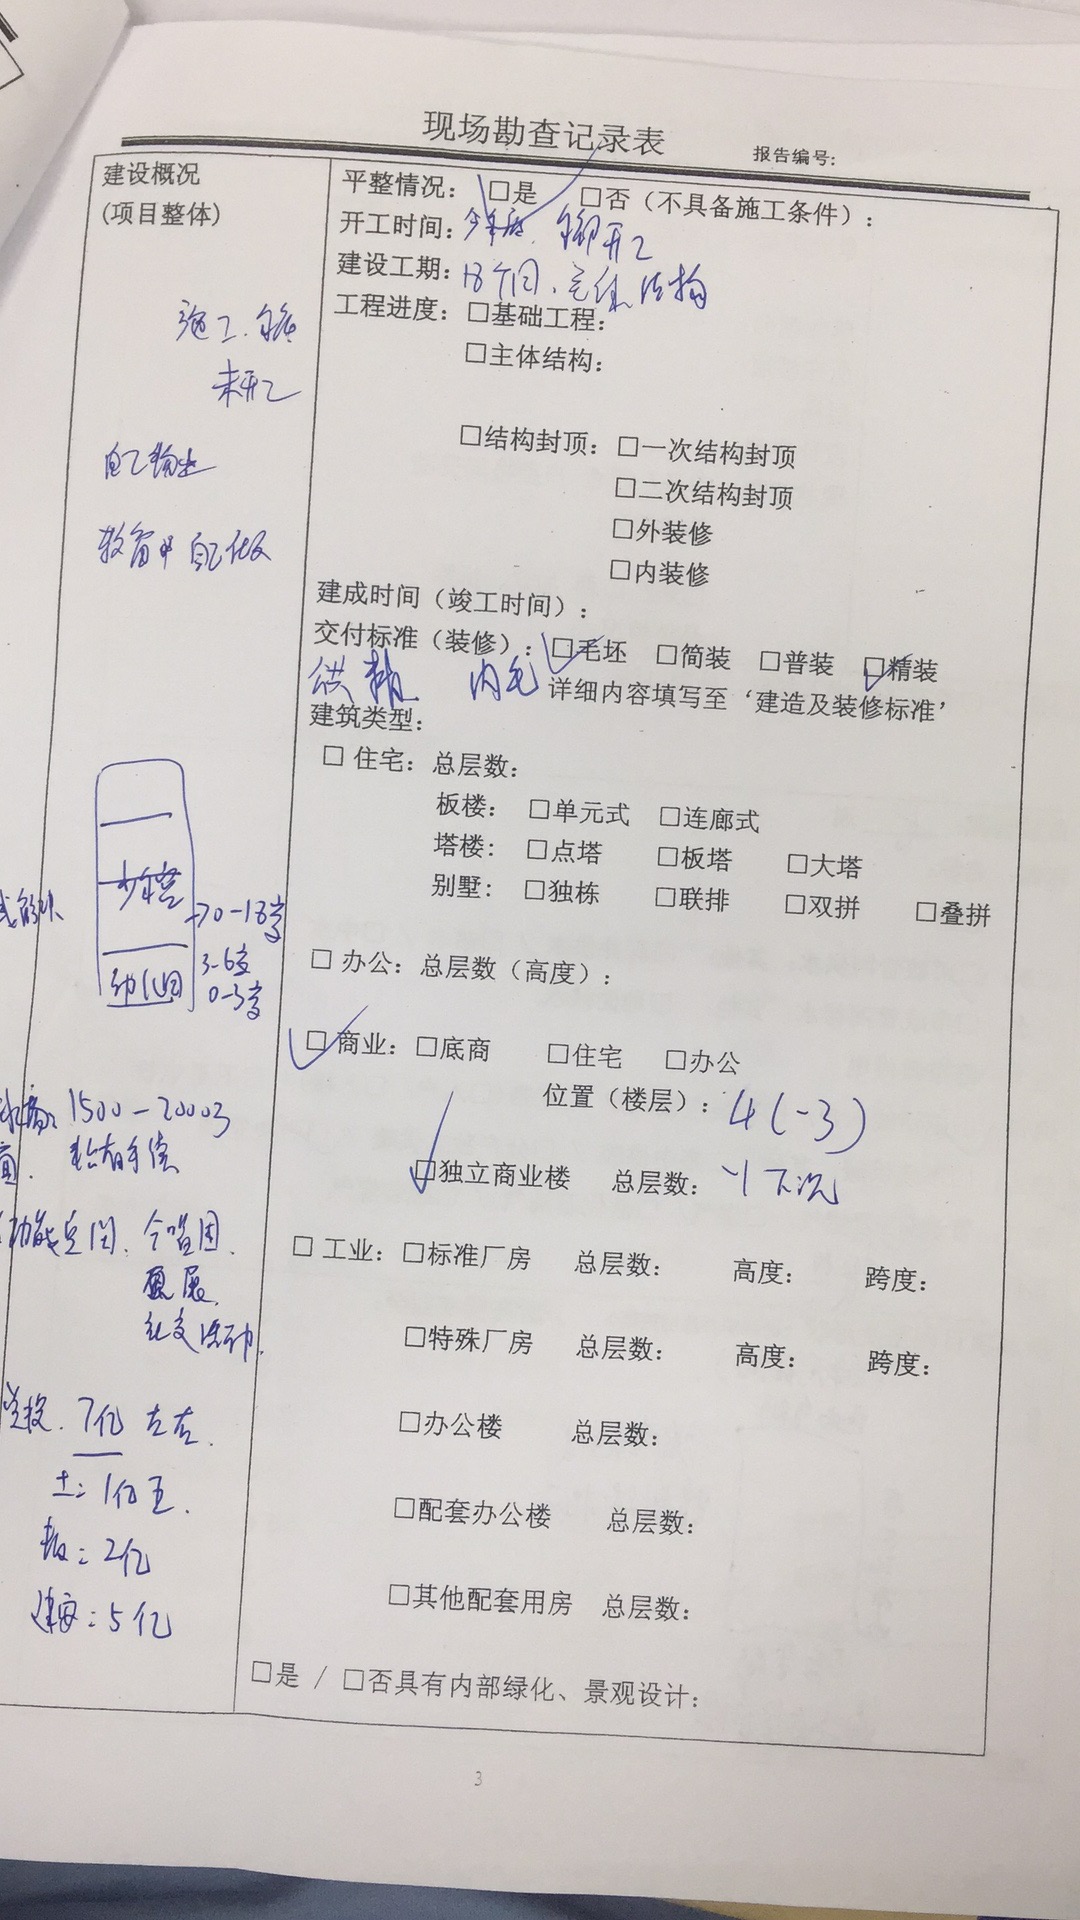 现场勘查记录表
报告编号:
建设概况
(项目整体)
平整情况: □是 □否(不具备施工条件):
开工时间:
建设工期: 18个月、
工程进度: □基础工程:
□主体结构:
施工
未开工
□结构封顶: □一次结构封顶
□二次结构封顶
□外装修
□内装修
自己
教育 自己做
建成时间(竣工时间):
交付标准(装修): □毛坯 □简装 □普装 □精装
精 内毛 详细内容填写至‘建造及装修标准’
建筑类型:
□ 住宅: 总层数:
板楼: □单元式 □连廊式
塔楼: □点塔 □板塔 □大塔
别墅: □独栋 □联排 □双拼 □叠拼
→0-18岁
3-6岁
幼儿园 0-3岁
□ 办公: 总层数(高度):
□ 商业: □底商 □住宅 □办公
位置(楼层): 4(-3)
□独立商业楼 总层数:
1500-2000
功能空间、
展
社交活动.
□ 工业: □标准厂房 总层数: 高度: 跨度:
□特殊厂房 总层数: 高度: 跨度:
□办公楼 总层数:
□配套办公楼 总层数:
□其他配套用房 总层数:
7亿左右.
土: 1亿五.
2亿
: 5亿
□是 / □否具有内部绿化、景观设计:
3